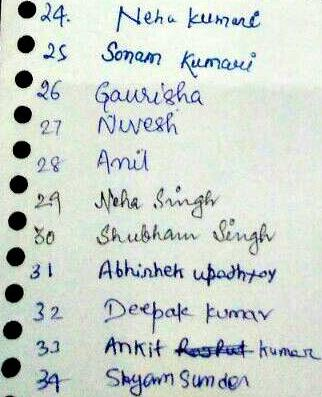 24. Neha Kumari
25 Sonam Kumari
26 Gaurisha
27 Nivesh
28 Anil
29 Neha Singh
30 Shubham Singh
31 Abhishek upadhyay
32 Deepak kumar
33 Ankit kumar
34 Shyam Sunder